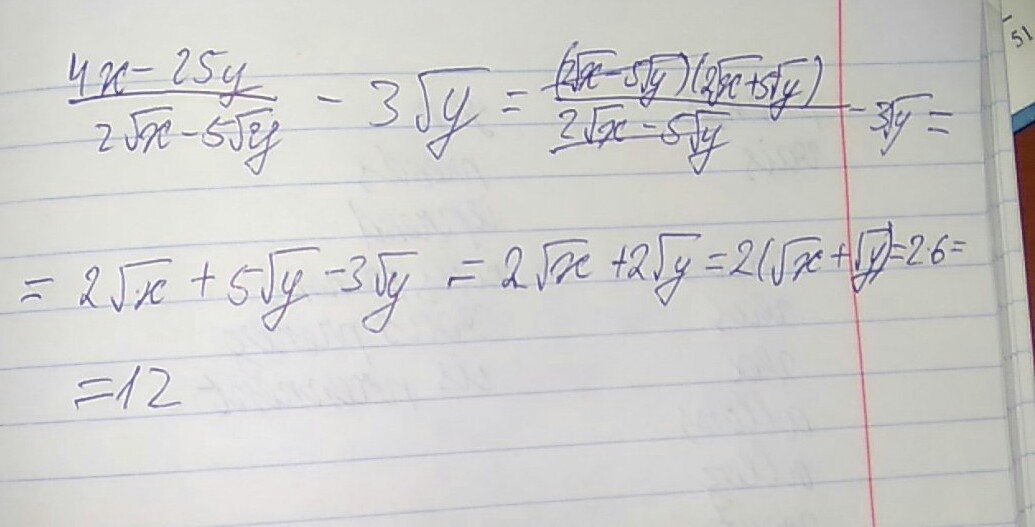 (4x - 25y)/(2√x - 5√y) - 3√y = ((2√x - 5√y)(2√x + 5√y))/(2√x - 5√y) - 3√y =
= 2√x + 5√y - 3√y = 2√x + 2√y = 2(√x + √y) = 2·6 =
= 12
51